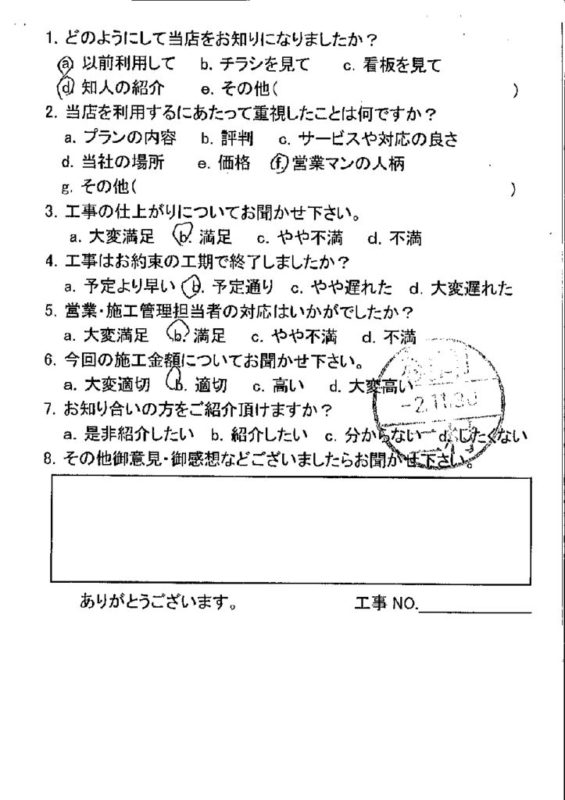 1. どのようにして当店をお知りになりましたか？
a. 以前利用して b. チラシを見て c. 看板を見て
d. 知人の紹介 e. その他( )
2. 当店を利用するにあたって重視したことは何ですか？
a. プランの内容 b. 評判 c. サービスや対応の良さ
d. 当社の場所 e. 価格 f. 営業マンの人柄
g. その他( )
3. 工事の仕上がりについてお聞かせ下さい。
a. 大変満足 b. 満足 c. やや不満 d. 不満
4. 工事はお約束の工期で終了しましたか？
a. 予定より早い b. 予定通り c. やや遅れた d. 大変遅れた
5. 営業・施工管理担当者の対応はいかがでしたか？
a. 大変満足 b. 満足 c. やや不満 d. 不満
6. 今回の施工金額についてお聞かせ下さい。
a. 大変適切 b. 適切 c. 高い d. 大変高い
-2.11.30
7. お知り合いの方をご紹介頂けますか？
a. 是非紹介したい b. 紹介したい c. 分からない d. したくない
8. その他御意見・御感想などございましたらお聞かせ下さい。
ありがとうございます。 工事 NO.